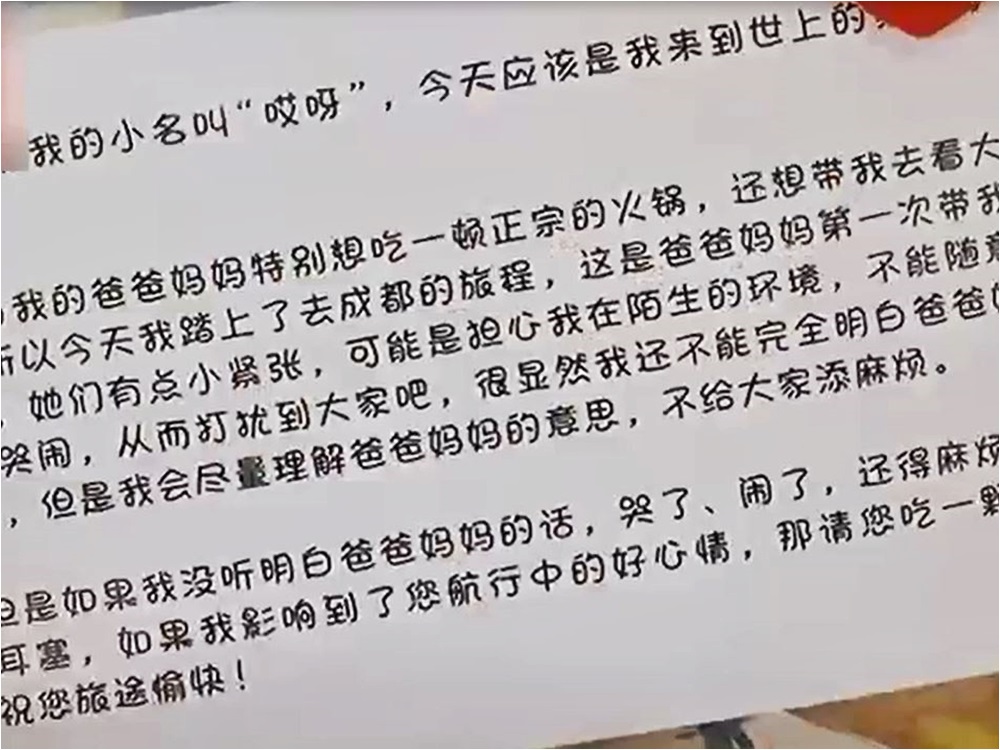 我的小名叫“哎呀”，今天应该是我来到世上的
我的爸爸妈妈特别想吃一顿正宗的火锅，还想带我去看大
所以今天我踏上了去成都的旅程，这是爸爸妈妈第一次带我
，她们有点小紧张，可能是担心我在陌生的环境，不能随意
哭闹，从而打扰到大家吧，很显然我还不能完全明白爸爸妈
，但是我会尽量理解爸爸妈妈的意思，不给大家添麻烦。
但是如果我没听明白爸爸妈妈的话，哭了、闹了，还得麻烦
耳塞，如果我影响到了您航行中的好心情，那请您吃一颗
祝您旅途愉快！